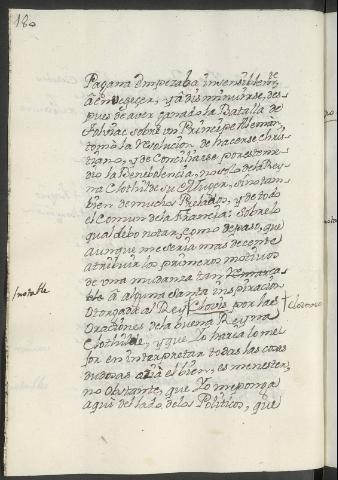 180
Pagana empezaba insensiblemte
à embegeçer, y à disminuirse, des
pues de aver ganado la Batalla de
Tolviac sobre un Principe Aleman
tomò la resolucion de hacerse chris
tiano, y de Conciliarse por este me
dio la Benebolencia, no solo de la Rey
na Clothilde su Muger, sino tam
bien de muchos Prelados, y de todo
el Comun de la Francia: sobre lo
qual debo notar, como de paso, que
aunque me seria mas decente
atribuir los primeros motivos
de una mudanza tan remarca
notable
ble à alguna santa inspiración
otorgada al Rey Clovis por las
Clodoveo
Oraciones de la buena Reyna
Clothilde, y que lo haria lo me
jor en interpretar todas las cosas
dudosas azia el bien, es menester,
no obstante, que Yo me ponga
aqui del lado de los Politicos, que